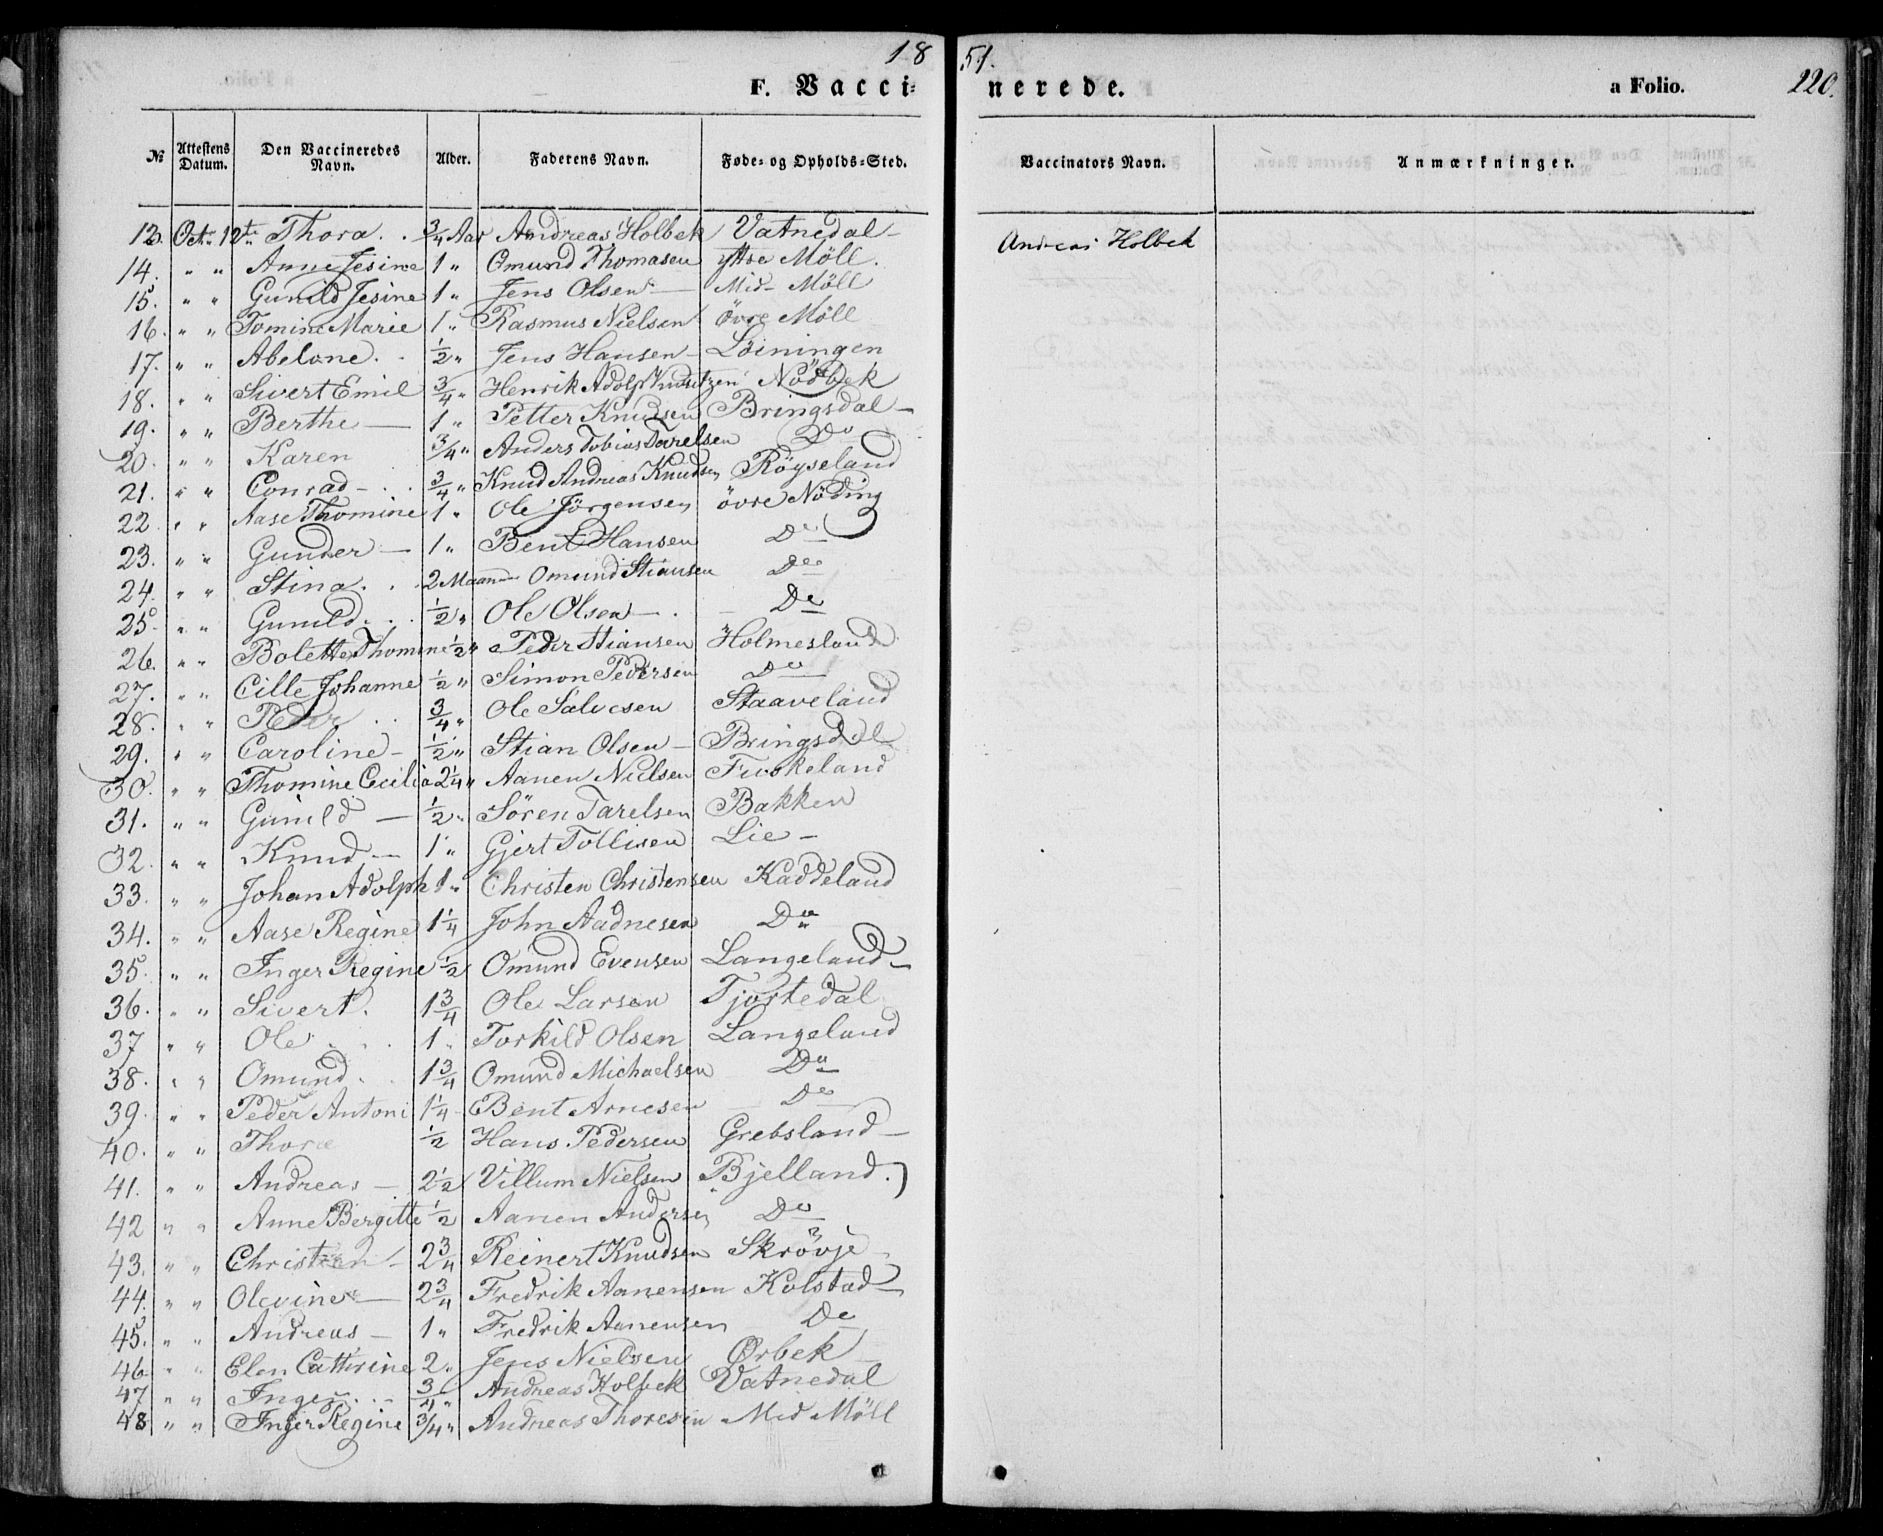 18 51.
F. Vacci= nerede. a Folio. 220.
№ Attestens Datum. Den Vaccineredes Navn. Alder. Faderens Navn. Føde- og Opholds-Sted. Vaccinators Navn. Anmærkninger.
13. Octr 12te Thora. . 3/4 Aar Andreas Holbek Vatnedal - Andreas Holbek
14. " " Anne Jesine 1 " Omund Thomasen yttre Möll.
15. " " Gunild Jesine 1 " Jens Olsen - Mid- Möll
16. " " Tomine Marie 1 " Rasmus Nielsen övre Möll
17. " " Abelone. . 1/2 " Jens Hansen - Löiningen
18. " " Sivert Emil 3/4 " Henrik Adolf Nödbek
19. " " Berthe - 1 " Petter Knudsen Bringsdal -
20. " " Karen 3/4 " Anders Tobias Tarelsen Do
21. " " Conrad - . . 3/4 " Knud Andreas Knudsen Röyseland
22. " " Aase Thomine 1 " Ole Jörgensen övre Nöding
23. " " Gunder - 1 " Bent Hansen Do
24. " " Stina. . . 2 Maan Omund Stiansen Do
25. " " Gunild. . . 1/2 " Ole Olsen - . Do
26. " " Bolette Thomine 1/2 " Peder Stiansen Holmesland
27. " " Cille Johanne 1/2 " Simon Pedersen Do
28. " " Peder . . 3/4 " Ole Salvesen Staaveland
29. " " Caroline - 1/2 " Stian Olsen - Bringsdal
30. " " Thomine Cecilia 2 1/4 " Aanen Nielsen Fuskeland
31. " " Gunild - 1/2 " Sören Tarelsen Bakken
32. " " Knud - 1 " Gjert Tollisen Lie -
33. " " Johan Adolph 1 " Christen Christensen Kaddeland
34. " " Aase Regine 1 1/4 John Aadnesen Do
35. " " Inger Regine 1/2 Omund Evensen Langeland -
36. " " Sivert. 1 3/4 Ole Larsen Tjortedal
37 " " Ole . . . 1 " Torkild Olsen Langeland
38. " " Omund. . 1 3/4 Omund Michaelsen Do
39. " " Peder Antoni 1 1/4 Bent Arnesen Do
40. " " Thora 1/2 Hans Pedersen Grebsland -
41. " " Andreas - 2 1/2 Villum Nielsen Bjelland.
42 " " Anne Bergitte 1/2 Aanen Andersen Do
43. " " Christen - 2 3/4 Reinert Knudsen Skrövje
44. " " Olevine - 2 3/4 Fredrik Aanensen Kolstad -
45. " " Andreas - 1 " Fredrik Aanensen Do
46 " " Elen Cathrine 2 " Jens Nielsen Ørbek
47 " " Inger . . - 3/4 " Andreas Holbek Vatnedal
48 " " Inger Regine 3/4 " Andreas Thoresen Mid Möll